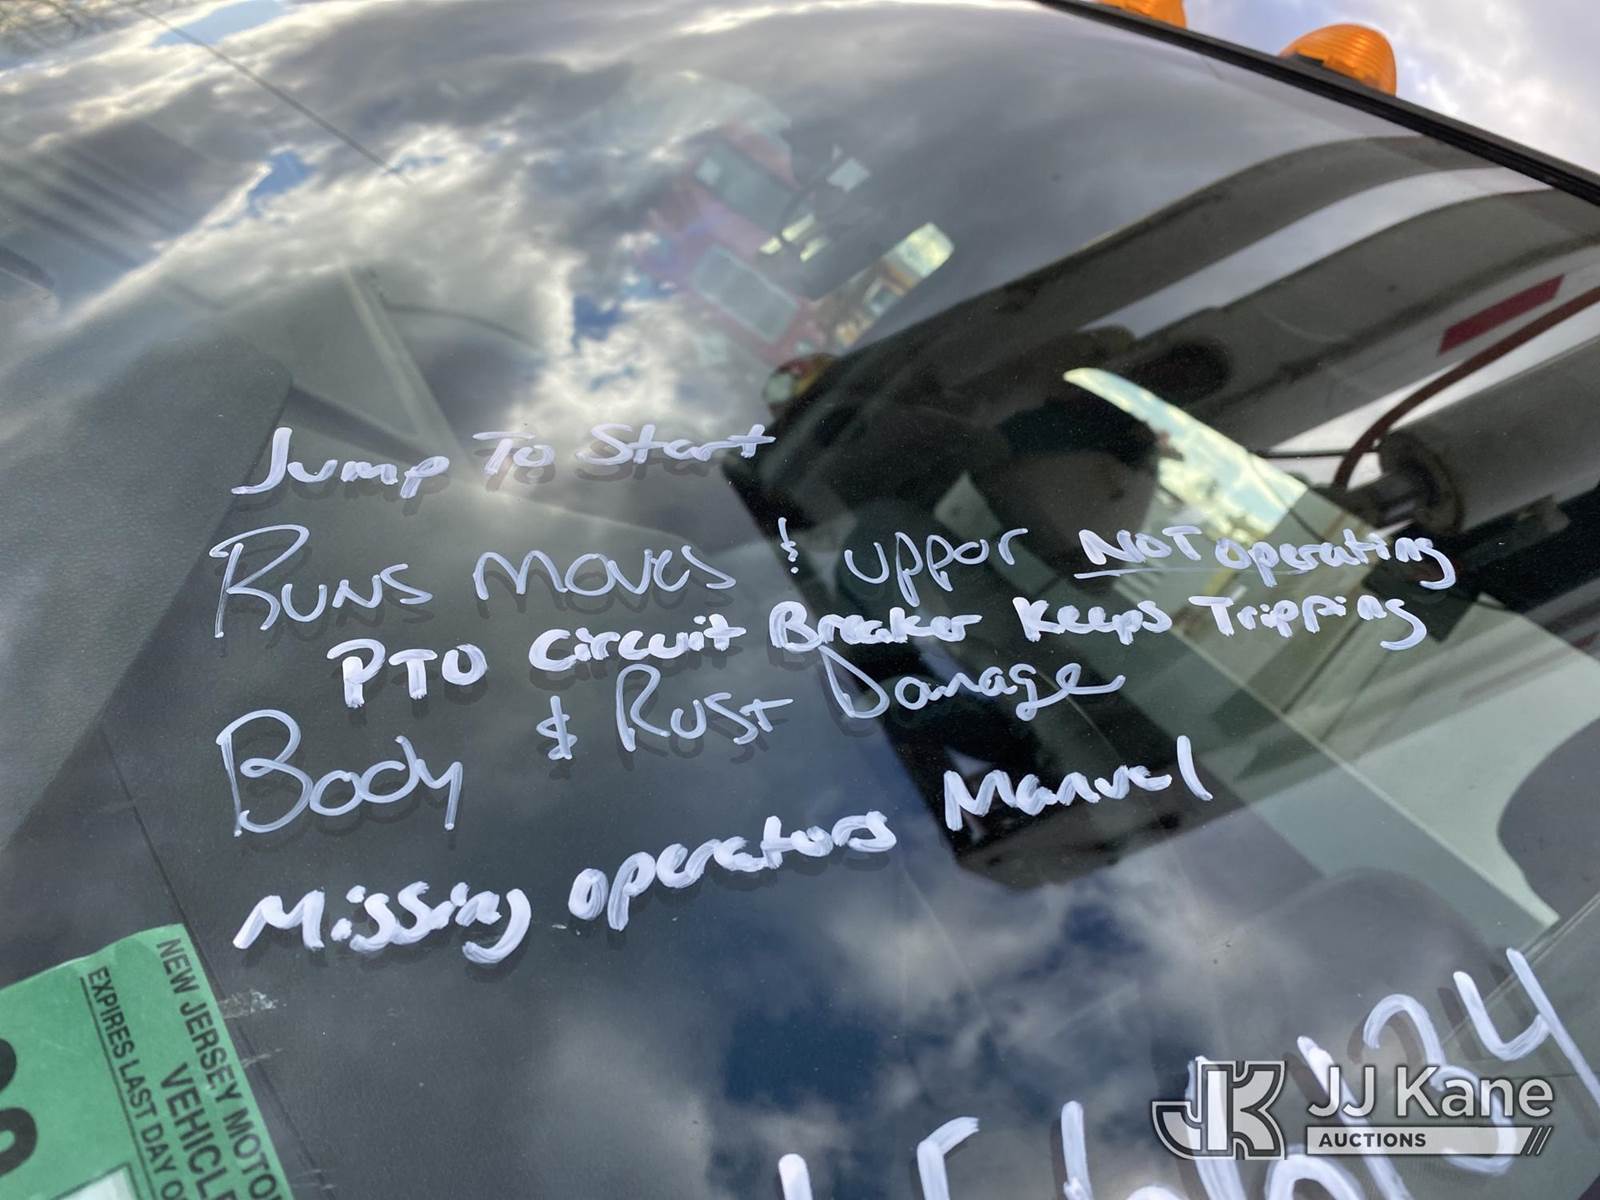 Jump To Start
Runs Moves & uppor NOT operating
PTO Circuit Breaker Keeps Tripping
Body & Rust Damage
Missing operators Manual
NEW JERSEY MOTOR
VEHICLE
EXPIRES LAST DAY OF
JJ Kane
AUCTIONS